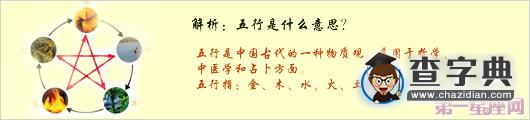 解析：五行是什么意思？
五行是中国古代的一种物质观。
中医学和占卜方面。
五行指：金、木、水、火、土
查字典
www.chazidian.com
第一星座网